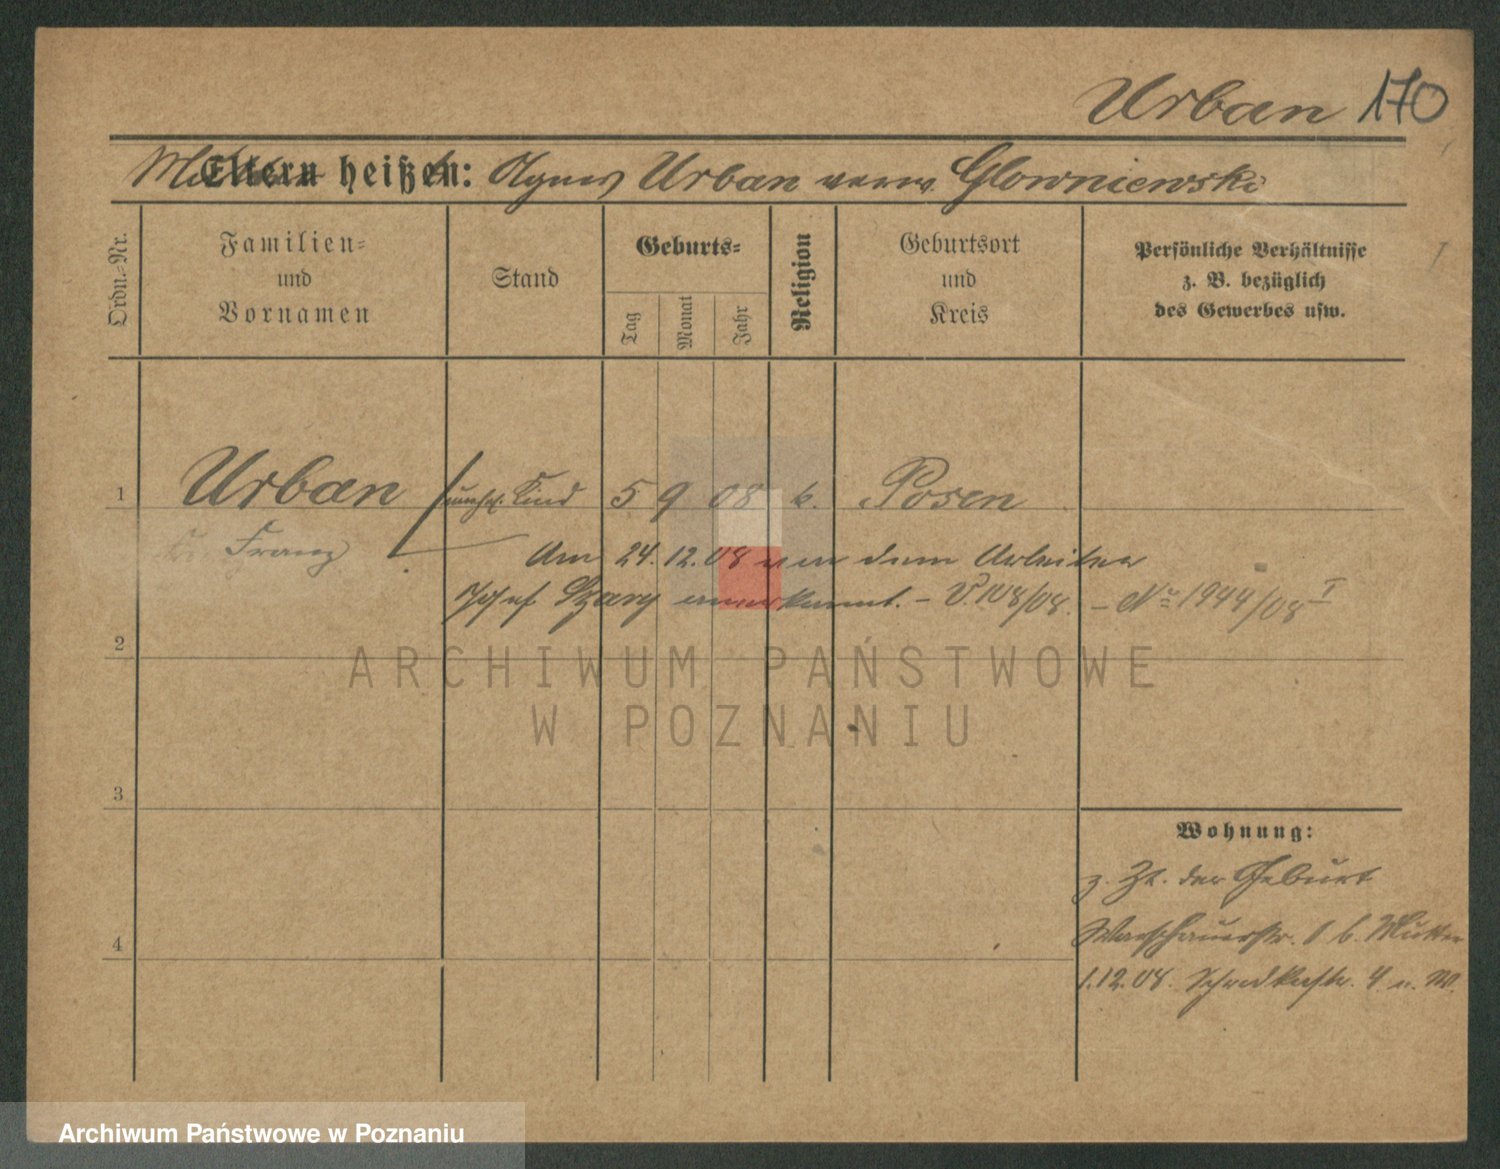 Urban 170
Mutter
Eltern heißen: Agnes Urban verw. Glowniewski
Ordn.-Nr.
Familien-
und
Vornamen
Stand
Geburts-
Tag
Monat
Jahr
Religion
Geburtsort
und
Kreis
Persönliche Verhältnisse
z. B. bezüglich
des Gewerbes usw.
1 Urban unehel. Kind 5 9 08 k. Posen
Franz
Am 24.12.08 von dem Arbeiter
Josef anerkannt. – V. 108/08. – No 1944/08 I
2
ARCHIWUM PAŃSTWOWE
W POZNANIU
3
Wohnung:
z. Zt. der Geburt
Warschauerstr. b. Mutter
4
1.12.08. Schrodkastr. 4
Archiwum Państwowe w Poznaniu